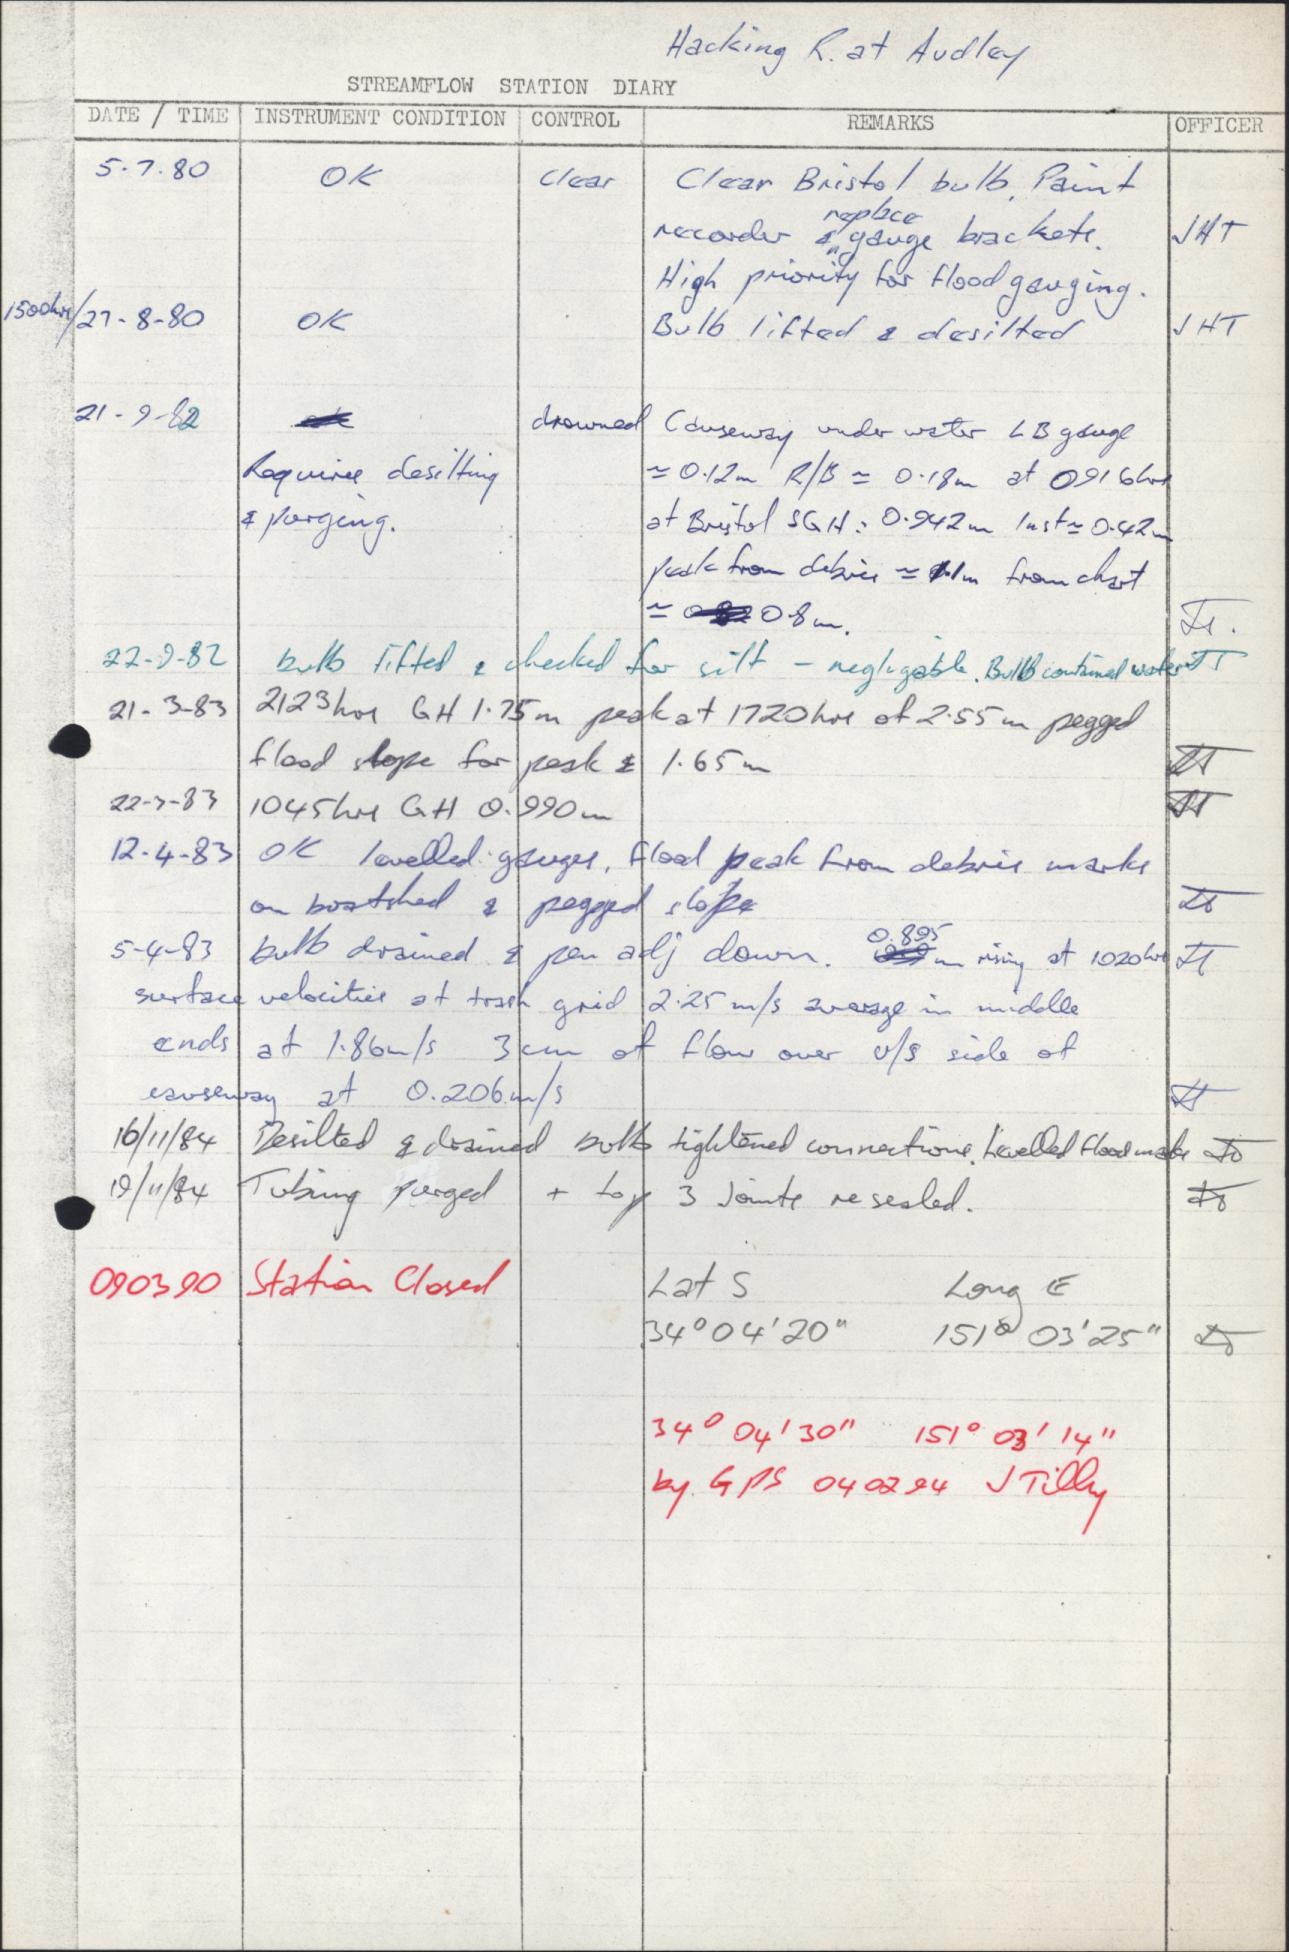 Hacking R. at Audley
STREAMFLOW STATION DIARY
DATE / TIME INSTRUMENT CONDITION CONTROL REMARKS OFFICER
5.7.80 OK clear Clear Bristol bulb, Paint
replace
recorder & gauge brackets. JHT
High priority for flood gauging.
1500hrs/27-8-80 OK Bulb lifted & desilted JHT
21-9-82 drowned Causeway under water LB gauge
Requires desilting ≃ 0.12m R/B ≃ 0.18m at 0916hrs
& purging. at Bristol SGH: 0.942m Inst ≃ 0.42m
peak from debris ≃ 1.1m from chart
≃ 0.8m.
22-9-82 bulb lifted & checked for silt - negligable. Bulb contained water JT
21-3-83 2123hrs GH 1.75m peak at 1720hrs of 2.55m pegged
flood slope for peak & 1.65m JT
22-3-83 1045hrs GH 0.990m JT
12-4-83 OK levelled gauges, flood peak from debris marks
on boatshed & pegged slope
0.895
5-4-83 bulb drained & pen adj down. m rising at 1020hrs JT
surface velocities at trash grid 2.25 m/s average in middle
ends at 1.86m/s 3cm of flow over u/s side of
causeway at 0.206m/s JT
16/11/84 Desilted & drained bulb tightened connections. Levelled flood marks
19/11/84 Tubing purged + top 3 Joints resealed.
090390 Station Closed Lat S Long E
34° 04' 20" 151° 03' 25"
34° 04' 30" 151° 03' 14"
by GPS 040294 J Tilly